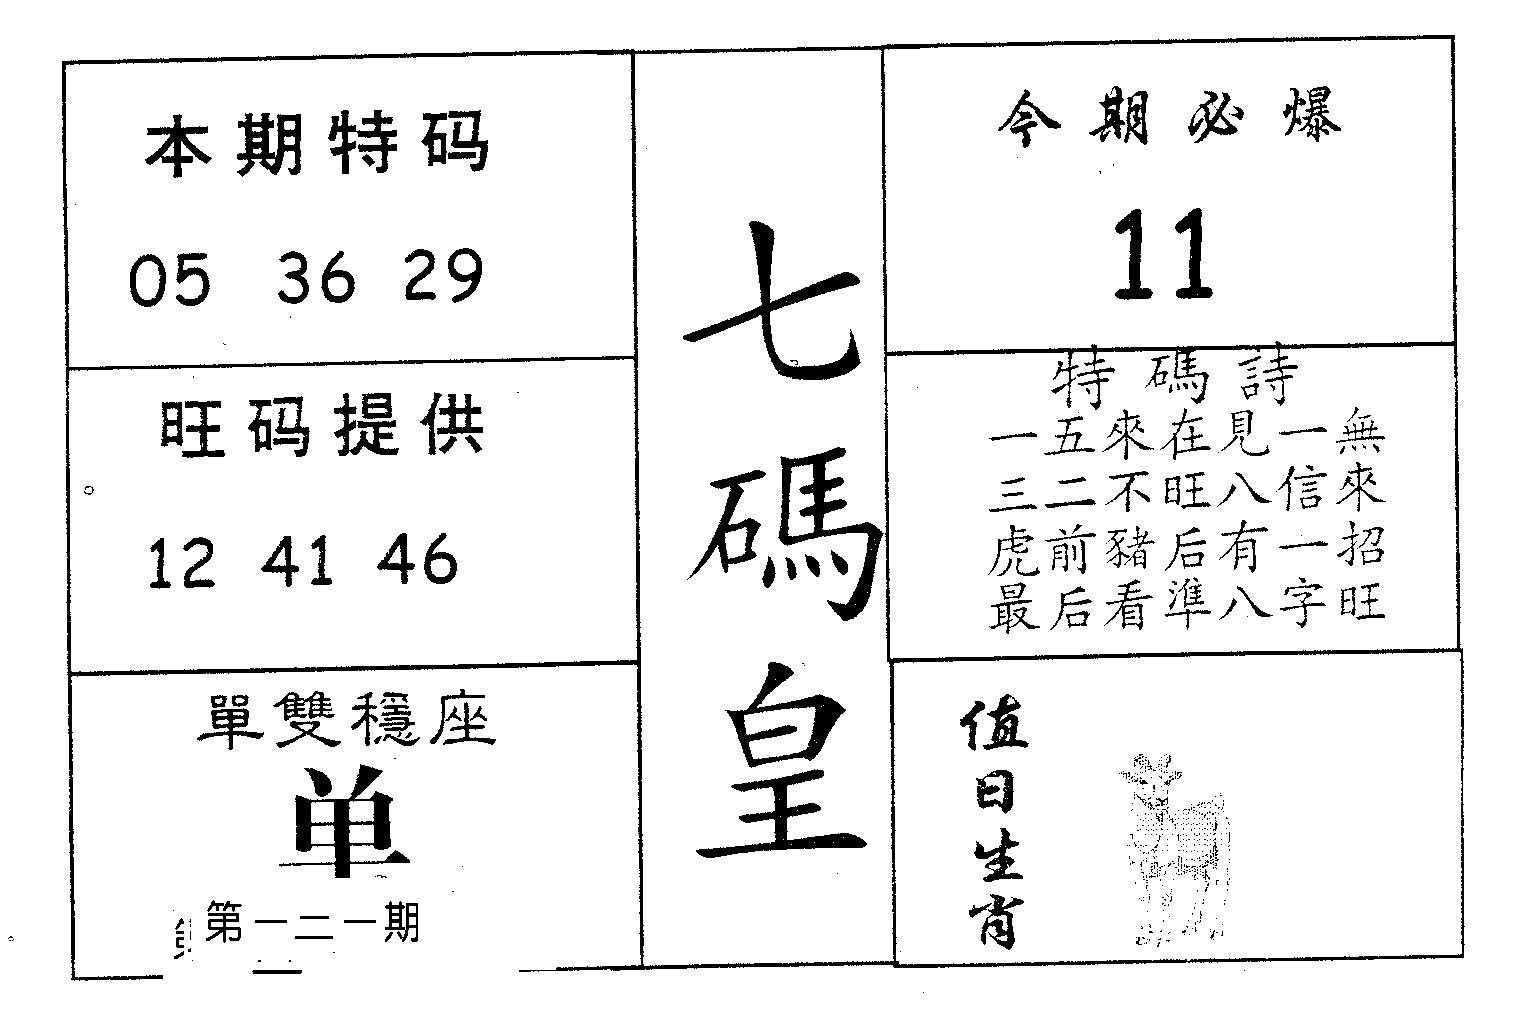 本期特码
05 36 29
旺码提供
12 41 46
單雙穩座
单
第一二一期
七碼皇
今期必爆
11
特碼詩
一五來在見一無
三二不旺八信來
虎前豬后有一招
最后看準八字旺
值日生肖